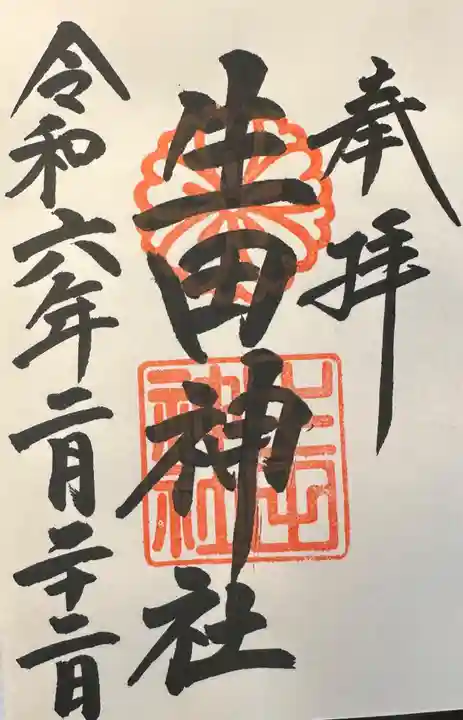 奉拝
生田神社
生田神社
令和六年二月二十二日